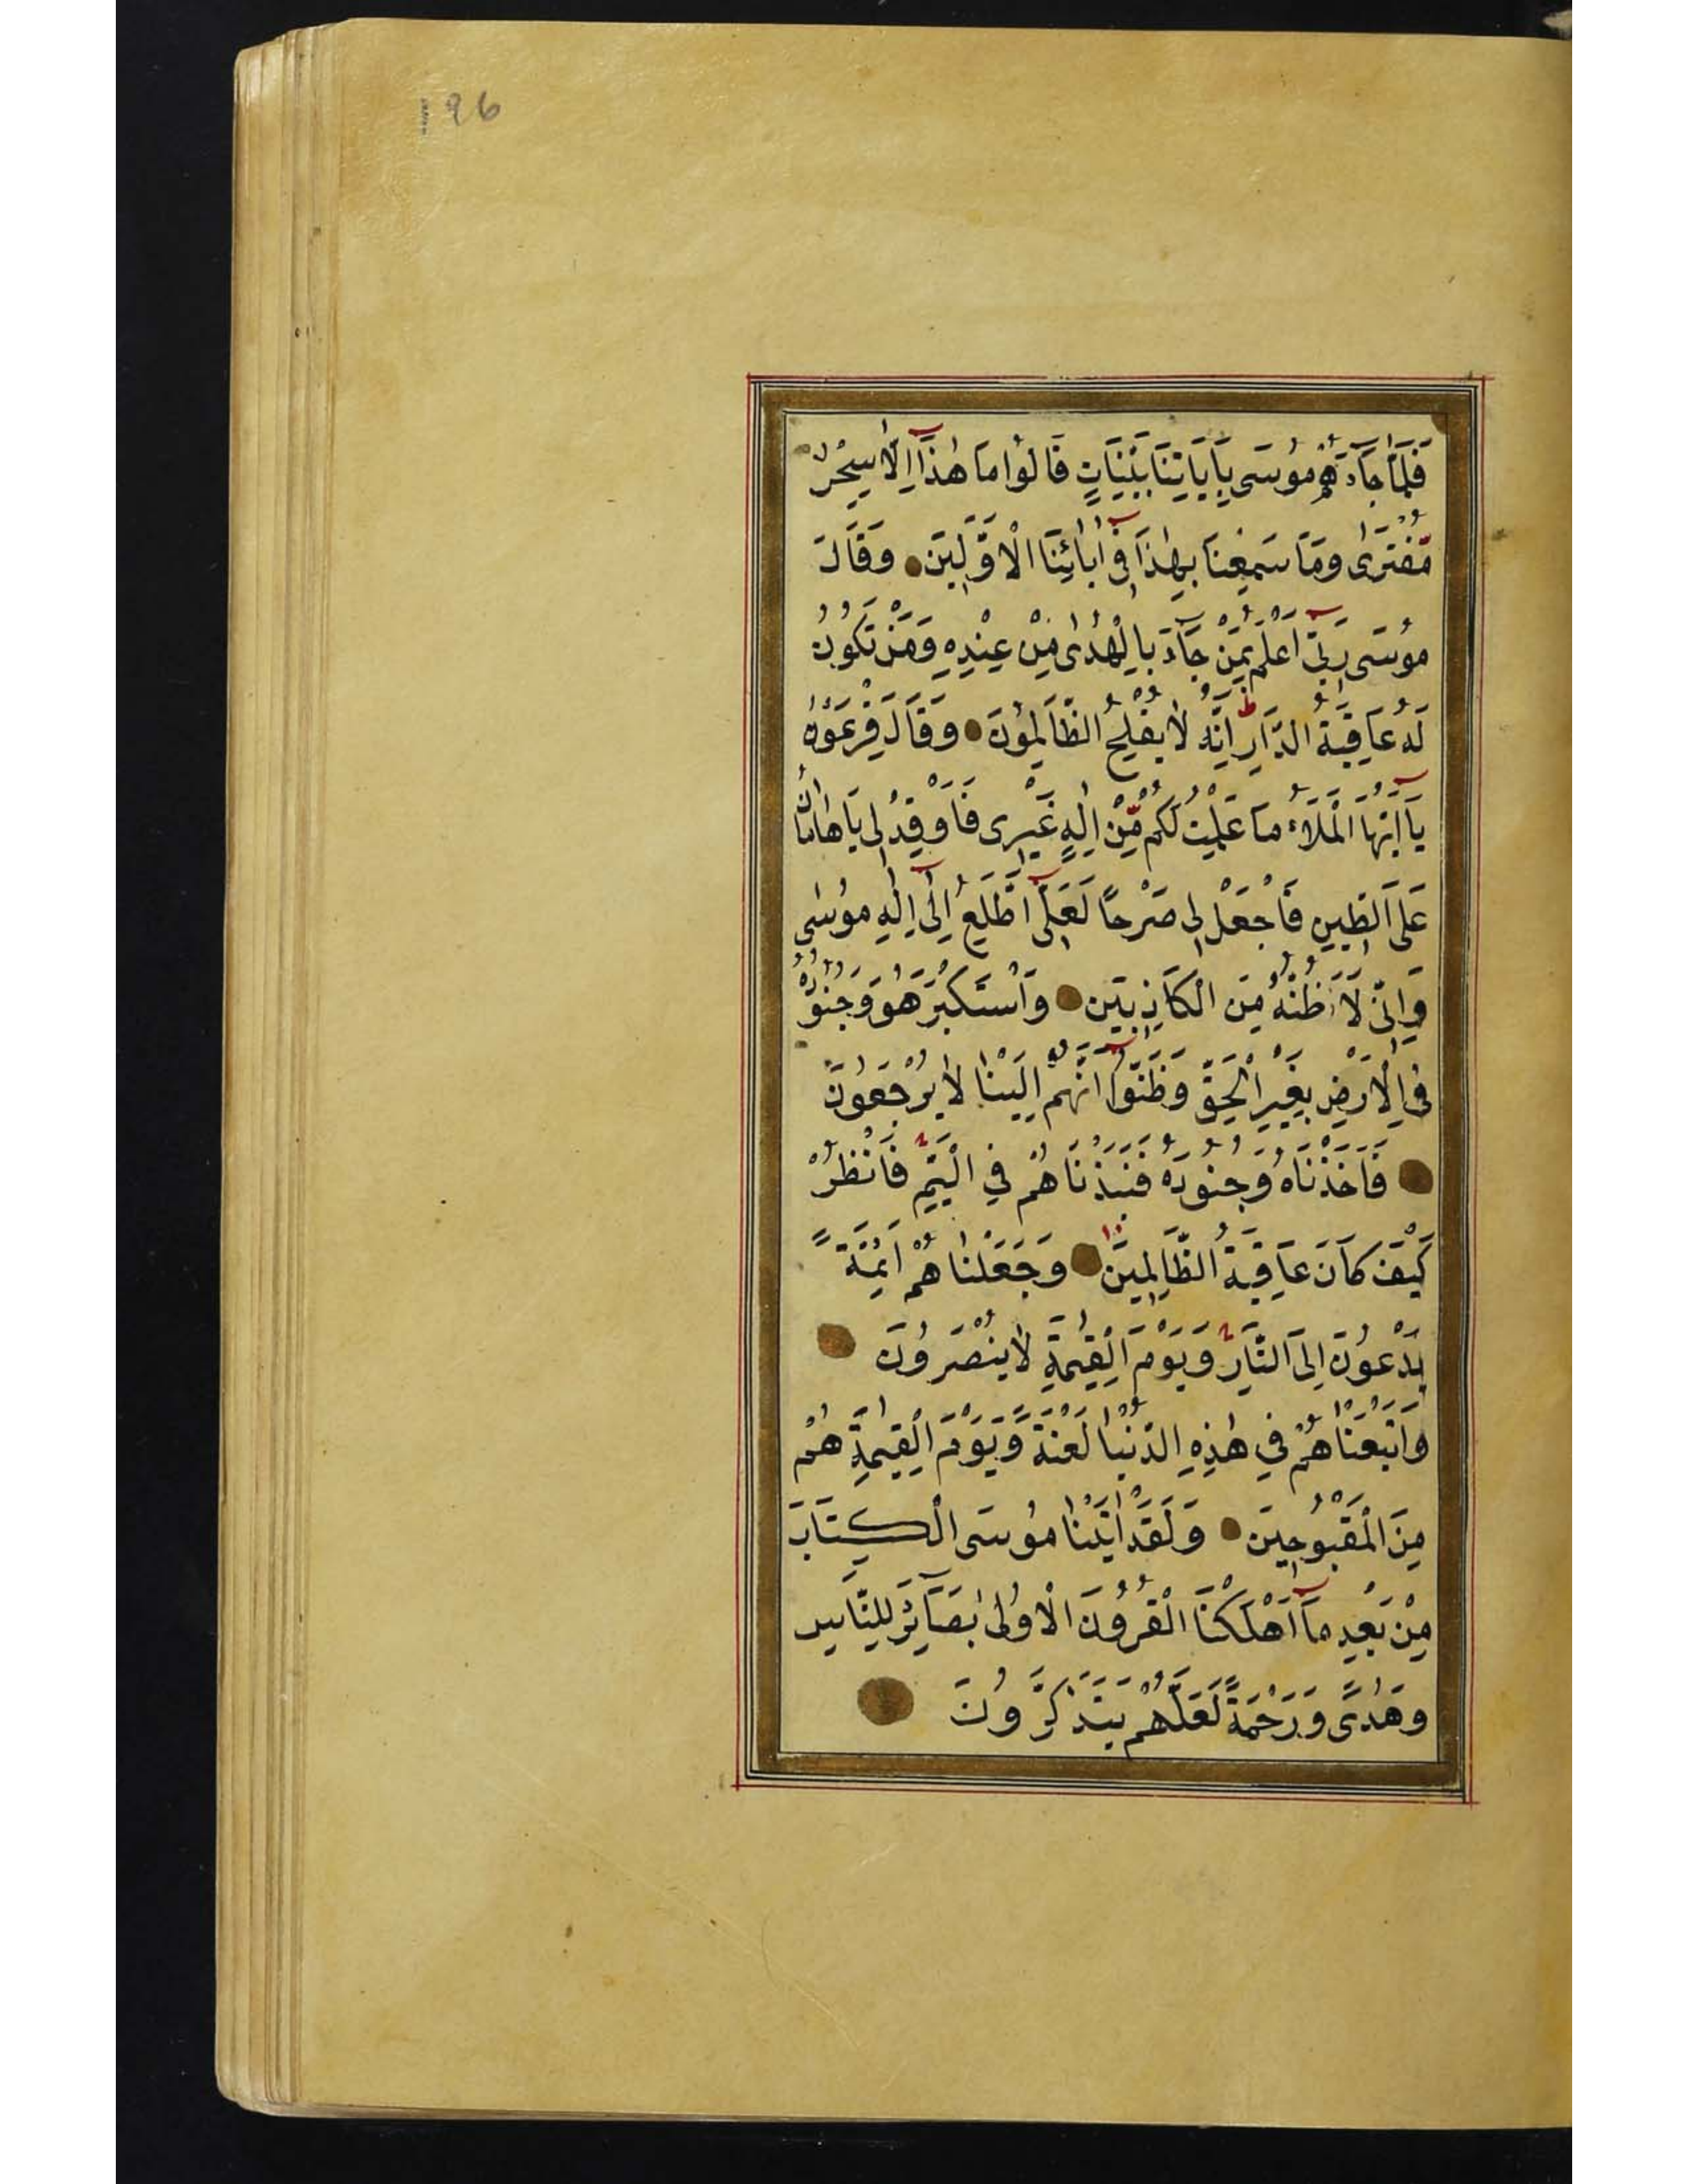 196
فَلَمَّا جَآءَهُمْ مُوسَى بِاٰيَاتِنَا بَيِّنَاتٍ قَالُوا مَا هٰذَآ اِلَّا سِحْرٌ
مُّفْتَرًى وَمَا سَمِعْنَا بِهٰذَا فِٓى اٰبَائِنَا الْاَوَّلِينَ وَقَالَ
مُوسَى رَبِّٓى اَعْلَمُ بِمَنْ جَآءَ بِالْهُدٰى مِنْ عِنْدِهِ وَمَنْ تَكُونُ
لَهُ عَاقِبَةُ الدَّارِ ط اِنَّهُ لَا يُفْلِحُ الظَّالِمُونَ وَقَالَ فِرْعَوْنُ
يَآ اَيُّهَا الْمَلَاُ مَا عَلِمْتُ لَكُمْ مِّنْ اِلٰهٍ غَيْرِى فَاَوْقِدْ لِى يَا هَامَانُ
عَلَى الطِّينِ فَاجْعَلْ لِى صَرْحًا لَعَلِّٓى اَطَّلِعُ اِلٰٓى اِلٰهِ مُوسٰى
وَاِنِّى لَاَظُنُّهُ مِنَ الْكَاذِبِينَ وَاسْتَكْبَرَ هُوَ وَجُنُودُهُ
فِى الْاَرْضِ بِغَيْرِ الْحَقِّ وَظَنُّوٓا اَنَّهُمْ اِلَيْنَا لَا يُرْجَعُونَ
فَاَخَذْنَاهُ وَجُنُودَهُ فَنَبَذْنَاهُمْ فِي الْيَمِّ فَانْظُرْ
كَيْفَ كَانَ عَاقِبَةُ الظَّالِمِينَ وَجَعَلْنَاهُمْ اَئِمَّةً
يَدْعُونَ اِلَى النَّارِ وَيَوْمَ الْقِيٰمَةِ لَا يُنْصَرُونَ
وَاَتْبَعْنَاهُمْ فِي هٰذِهِ الدُّنْيَا لَعْنَةً وَّيَوْمَ الْقِيٰمَةِ هُمْ
مِنَ الْمَقْبُوحِينَ وَلَقَدْ اٰتَيْنَا مُوسَى الْكِتَابَ
مِنْ بَعْدِ مَآ اَهْلَكْنَا الْقُرُونَ الْاُولٰى بَصَآئِرَ لِلنَّاسِ
وَهُدًى وَرَحْمَةً لَعَلَّهُمْ يَتَذَكَّرُونَ